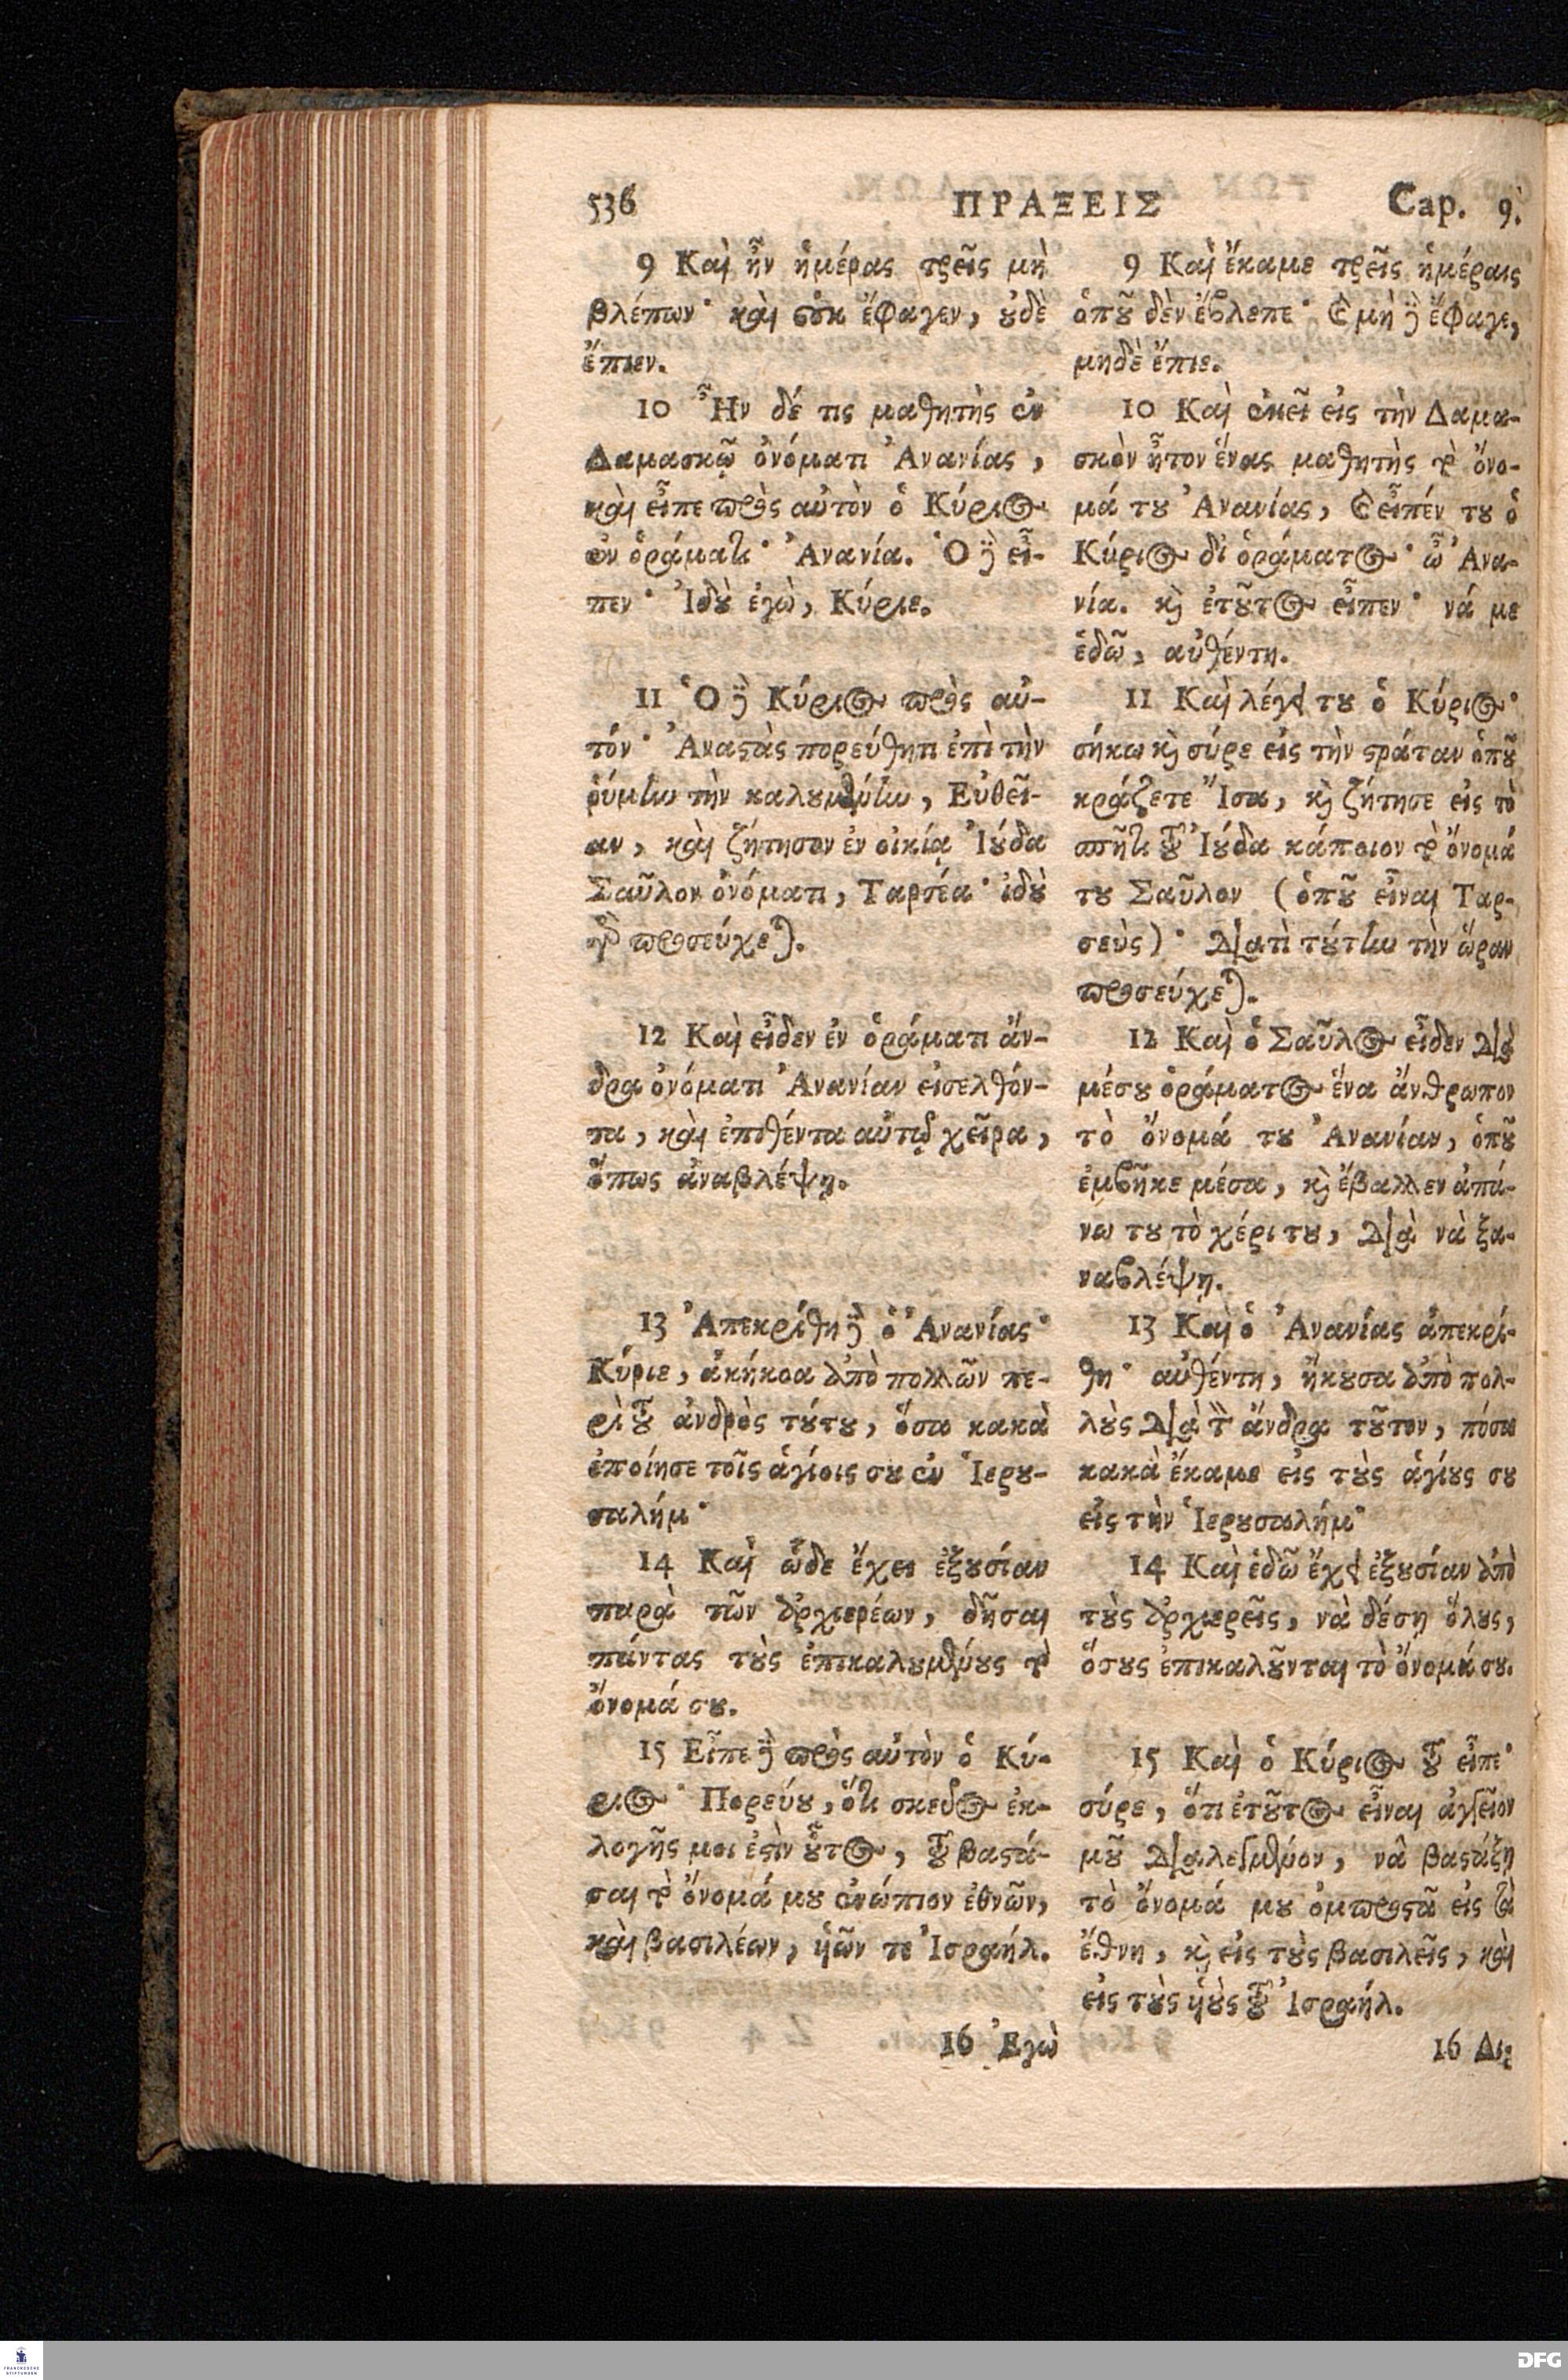 536 ΠΡΑΞΕΙΣ Cap. 9.
9 Καὶ ἦν ἡμέρας τρεῖς μὴ
βλέπων· καὶ οὐκ ἔφαγεν, ȣδὲ
ἔπιεν.
10 Ἦν δέ τις μαθητὴς ἐν
Δαμασκῷ ὀνόματι Ἀνανίας,
καὶ εἶπε πρὸς αὐτὸν ὁ Κύριος
ἐν ὁράματι· Ἀνανία. Ὁ δὲ εἶ-
πεν· Ἰδȣ̀ ἐγὼ, Κύριε.
11 Ὁ δὲ Κύριος πρὸς αὐ-
τόν· Ἀναϛὰς πορεύθητι ἐπὶ τὴν
ῥύμην τὴν καλȣμένην, Εὐθεῖ-
αν, καὶ ζήτησον ἐν οἰκίᾳ Ἰȣ́δα
Σαῦλον ὀνόματι, Ταρσέα· ἰδȣ̀
γὰρ προσεύχεται.
12 Καὶ εἶδεν ἐν ὁράματι ἄν-
δρα ὀνόματι Ἀνανίαν εἰσελθόν-
τα, καὶ ἐπιθέντα αὐτῷ χεῖρα,
ὅπως ἀναβλέψῃ.
13 Ἀπεκρίθη δὲ ὁ Ἀνανίας·
Κύριε, ἀκήκοα ἀπὸ πολλῶν πε-
ρὶ τȣ͂ ἀνδρὸς τȣ́τȣ, ὅσα κακὰ
ἐποίησε τοῖς ἁγίοις σȣ ἐν Ἱερȣ-
σαλήμ·
14 Καὶ ὧδε ἔχει ἐξȣσίαν
παρὰ τῶν ἀρχιερέων, δῆσαι
πάντας τȣ̀ς ἐπικαλȣμένȣς τὸ
ὄνομά σȣ.
15 Εἶπε δὲ πρὸς αὐτὸν ὁ Κύ-
ριος· Πορεύȣ, ὅτι σκεῦος ἐκ-
λογῆς μοι ἐϛὶν ȣ̓͂τος, τȣ͂ βαϛά-
σαι τὸ ὄνομά μȣ ἐνώπιον ἐθνῶν,
καὶ βασιλέων, ὑῶν τε Ἰσραήλ.
16 Ἐγὼ
9 Καὶ ἔκαμε τρεῖς ἡμέραις
ὁπȣ͂ δὲν ἔβλεπε· καὶ μὴ δὲ ἔφαγε,
μηδὲ ἔπιε.
10 Καὶ ἐκεῖ εἰς τὴν Δαμα-
σκὸν ἦτον ἕνας μαθητὴς τὸ ὄνο-
μά τȣ Ἀνανίας, καὶ εἶπέν τȣ ὁ
Κύριος δι ὁράματος· ὦ Ἀνα-
νία. κ̀ ἐτȣ͂τος εἶπεν· νά με
ἐδῶ, αὐθέντη.
11 Καὶ λέγει τȣ ὁ Κύριος·
σήκω κ̀ σύρε εἰς τὴν ϛράταν ὁπȣ͂
κράζετε Ἴσα, κ̀ ζήτησε εἰς τὸ
σπῆτι τȣ͂ Ἰȣ́δα κάποιον τὸ ὄνομά
τȣ Σαῦλον (ὁπȣ͂ εἶναι Ταρ-
σεὺς)· διατὶ τȣ́την τὴν ὥραν
προσεύχεται.
12 Καὶ ὁ Σαῦλος εἶδεν διὰ
μέσȣ ὁράματος ἕνα ἄνθρωπον
τὸ ὄνομά τȣ Ἀνανίαν, ὁπȣ͂
ἐμβῆκε μέσα, κ̀ ἔβαλλεν ἀπά-
νω τȣ τὸ χέρι τȣ, διὰ νὰ ξα-
ναβλέψῃ.
13 Καὶ ὁ Ἀνανίας ἀπεκρί-
θη· αὐθέντη, ἤκȣσα ἀπὸ πολ-
λȣ̀ς διὰ τὸν ἄνδρα τȣ͂τον, πόσα
κακὰ ἔκαμε εἰς τȣ̀ς ἁγίȣς σȣ
εἰς τὴν Ἱερȣσαλήμ·
14 Καὶ ἐδῶ ἔχει ἐξȣσίαν ἀπὸ
τȣ̀ς ἀρχιερεῖς, νὰ δέσῃ ὅλȣς,
ὅσȣς ἐπικαλȣ͂νται τὸ ὄνομά σȣ.
15 Καὶ ὁ Κύριος τȣ͂ εἶπε·
σύρε, ὅτι ἐτȣ͂τος εἶναι ἀγγεῖον
μȣ͂ διαλεγμένον, νὰ βαϛάζῃ
τὸ ὄνομά μȣ ὀμπροϛὰ εἰς τὰ
ἔθνη, κ̀ εἰς τȣ̀ς βασιλεῖς, καὶ
εἰς τȣ̀ς ὑȣ̀ς τȣ͂ Ἰσραήλ.
16 Διε
FRANCKESCHE STIFTUNGEN
DFG